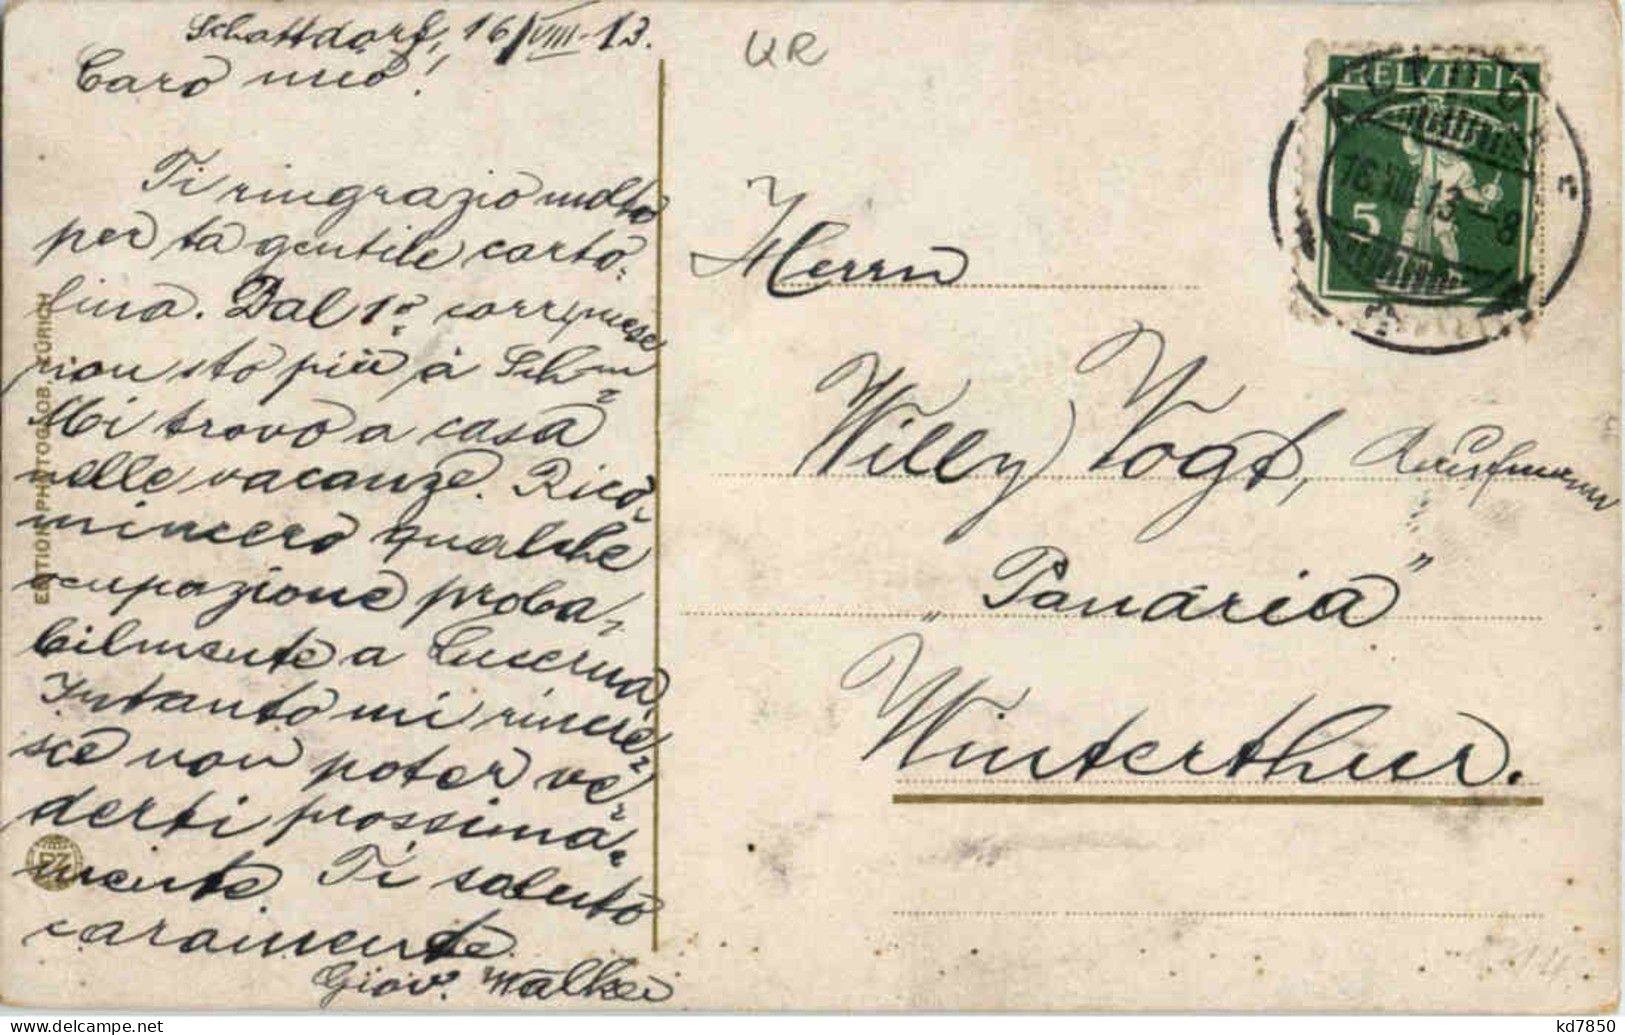 Schattdorf, 16/VIII-13.
Caro mio!
Ti ringrazio molto
per ta gentile carto-
lina. Dal 1º corr mese
non sto più à Schm
Mi trovo a casa
nelle vacanze. Rico-
mincerò qualche
ocupazione proba-
bilmente a Lucerna,
Intanto mi rincre-
sce non poter ve-
derti prossima-
mente. Ti saluto
caramente
Giov. Walker
UR
HELVETIA
5
16.VIII.13.-8
Herrn
Willy Vogt, Kaufmann
"Panaria"
Winterthur.
EDITION PHOTOGLOB, ZÜRICH
PZ
kd7850